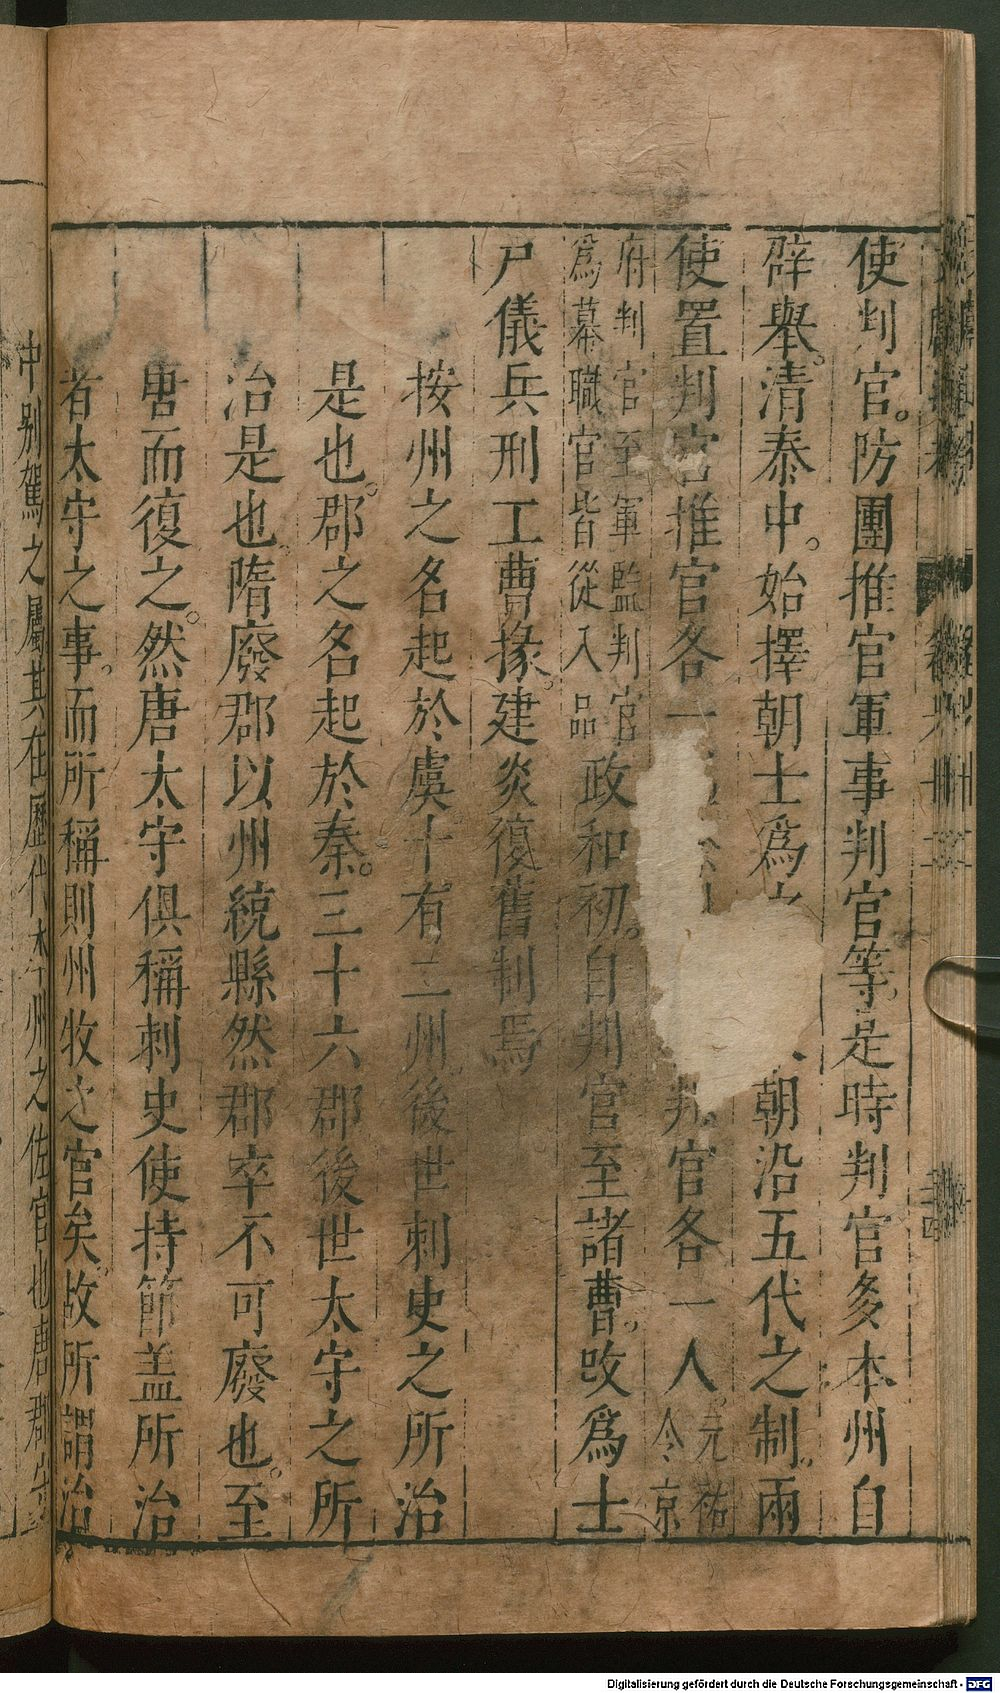 使判官。防團推官軍事判官等。是時判官多本州自
辟舉。清泰中。始擇朝士爲之 朝沿五代之制。兩
使置判官推官各一 判官各一人。元祐令京
府判官至軍監判官
爲幕職官皆從入品
政和初。自判官至諸曹。改爲士
戶儀兵刑工曹掾。建炎復舊制焉
按州之名起於虞十有二州。後世刺史之所治
是也。郡之名起於秦。三十六郡後世太守之所
治是也。隋廢郡以州統縣然郡卒不可廢也。至
唐而復之。然唐太守俱稱刺史使持節蓋所治
者太守之事。而所稱則州牧之官矣。故所謂治
中別駕之屬其在歷代本州之佐官也唐郡
Digitalisierung gefördert durch die Deutsche Forschungsgemeinschaft - DFG